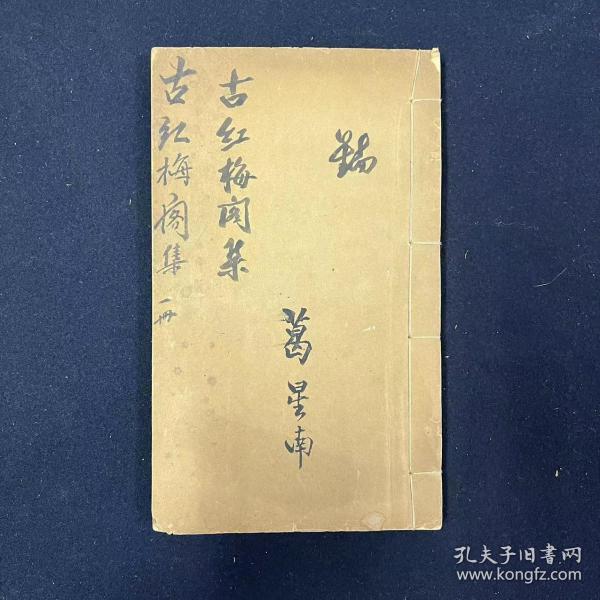 古红梅阁集 一冊
古红梅阁集
葛星南
孔夫子旧書网
www.kongfz.com